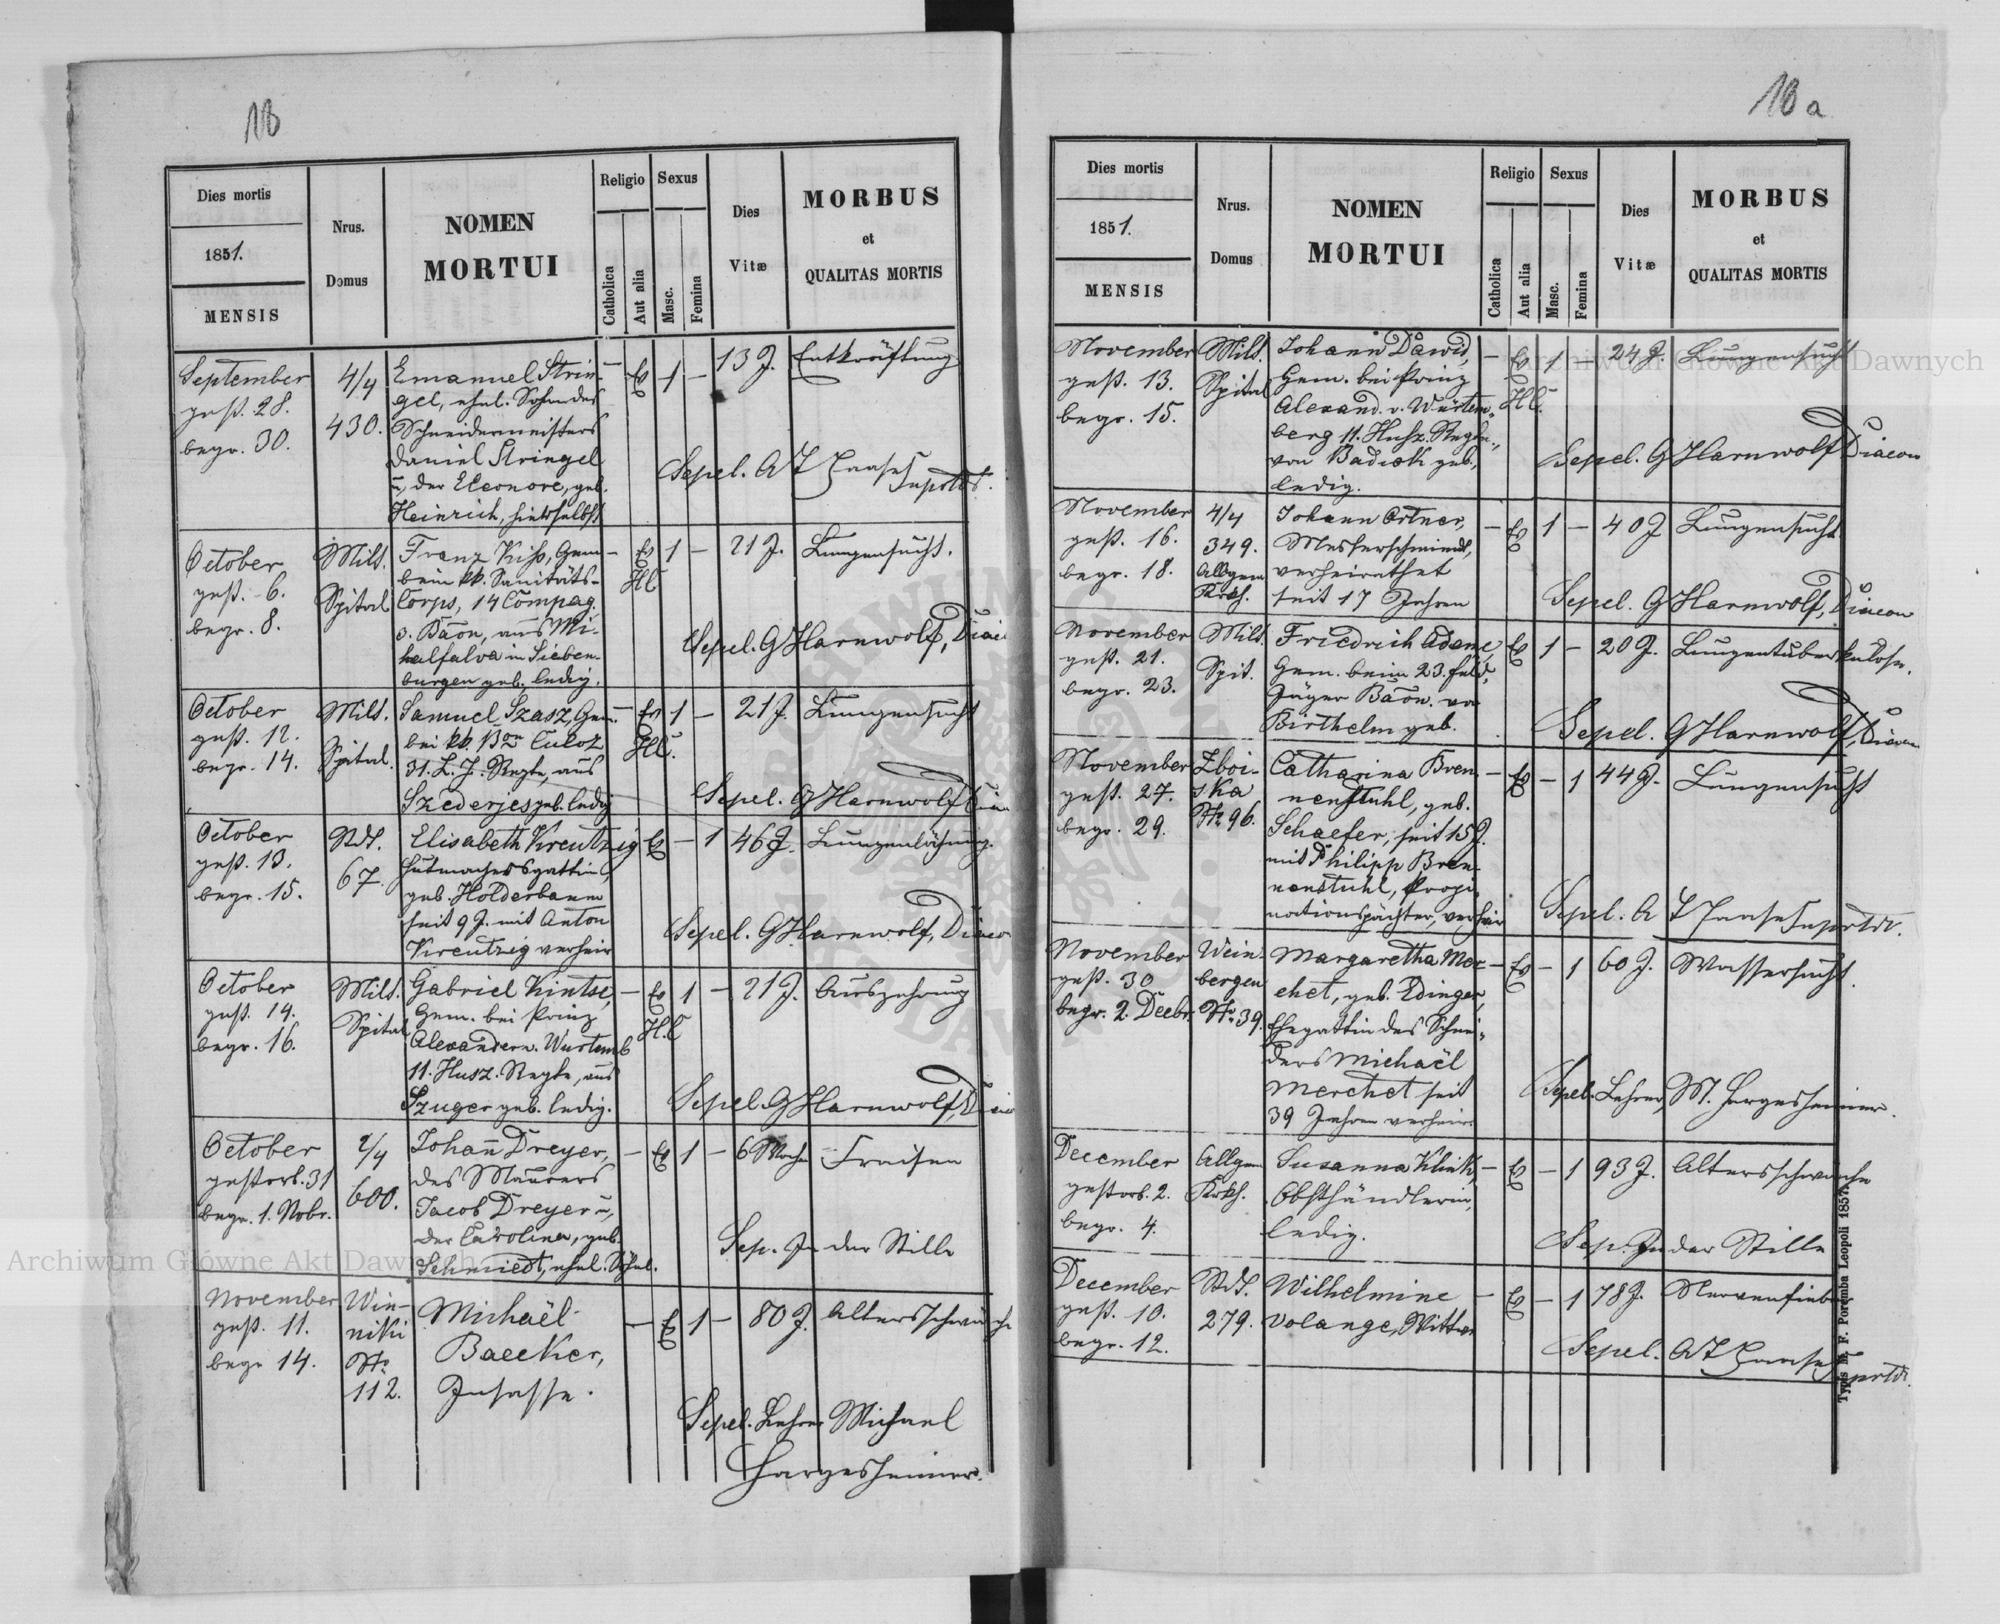 18
Dies mortis
1851.
MENSIS
Nrus.
Domus
NOMEN
MORTUI
Religio
Catholica
Aut alia
Sexus
Masc.
Femina
Dies
Vitæ
MORBUS
et
QUALITAS MORTIS
September
gest. 28.
begr. 30.
4/4
430.
Emanuel Strin-
gel, ehel. Sohn des
Schneidermeisters
Daniel Stringel
u, der Eleonore, geb.
Heinrich, hierselbst
— Ev 1 — 13 J. Entkräftung
Sepel. A T Haase Suprtdt.
October
gest. 6.
begr. 8.
Milt.
Spital
Franz Kiss, Gem
beim kk. Sanitäts-
Corps, 14 Compag.
aus Mi-
halfalva in Sieben-
burgen geb. ledig.
— Ev 1 — 21 J. Lungensucht.
HC
Sepel. G Harnwolf, Diacon
October
gest. 12.
begr. 14.
Milt.
Spital.
Samuel Szasz, Gem.
bei kk. Bon Culoz
31. L. J. Regte, aus
Szederjes geb. ledig
— Ev 1 — 21 J. Lungensucht
HC.
Sepel. G Harnwolf Diacon
October
gest. 13.
begr. 15.
Stdt.
67
Elisabeth Kreutzig
Hutmachersgattin,
geb. Holderbaum
seit 9 J. mit Anton
Kreutzig verheir
Ev — 1 46 J. Lungenlähmung.
Sepel. G Harnwolf, Diacon
October
gest. 14.
begr. 16.
Milt.
Spital
Gabriel Kintse,
Gem. bei Prinz
Alexander v. Wurtemb
11. Husz. Regte, aus
Szuger geb. ledig.
— Ev 1 — 21 J. Auszehrung
H.C
Sepel. G Harnwolf, Diacon
October
gestorb. 31
begr. 1. Nobr.
2/4
600.
Johan̄ Dreyer,
des Maurers
Jacob Dreyer u,
der Carolina, geb.
Schmiedt, ehel. Sohn.
— Ev 1 — 6 Woche Fraisen
Sep. In der Stille
November
gest. 11.
begr 14.
Win-
niki
No
112.
Michaël
Baecker,
Insasse.
— Ev 1 — 80 J. Altersschwäche
Sepel. Lehrer Michael
Hargesheimer.
18 a
Dies mortis
1851.
MENSIS
Nrus.
Domus
NOMEN
MORTUI
Religio
Catholica
Aut alia
Sexus
Masc.
Femina
Dies
Vitæ
MORBUS
et
QUALITAS MORTIS
November
gest. 13.
begr. 15.
Milt.
Spital
Johann David,
Gem. bei Prinz
Alexand. v. Würtem-
berg 11. Husz. Regte.,
von Badiok geb.,
ledig.
— Ev 1 24 J. Lungensucht
HC.
Sepel. G Harnwolf Diacon
November
gest. 16.
begr. 18.
4/4
349.
Allgem
Krkh.
Johann Ortner,
Messerschmiedt,
verheirathet
seit 17 Jahren
— Ev 1 — 40 J Lungensucht
Sepel. G Harnwolf, Diacon
November
gest. 21.
begr. 23.
Milt.
Spit.
Friedrich Adami,
Gem. beim 23. Feld-
Jäger Baon. von
Birthelm geb.
Ev 1 — 20 J. Lungentuberkulose.
Sepel. G Harnwolf, Diacon
November
gest. 27.
begr. 29.
Zboi-
ska
No 96.
Catharina Bren-
nenstuhl, geb.
Schaefer, seit 15 J.
mit Philipp Bren-
nenstuhl, Propi-
nationspächter, verheir
— Ev — 1 44 J. Lungensucht
Sepel. A T Haase Suprtdt.
November
gest. 30
begr. 2. Decbr.
Wein
bergen
No 39.
Margaretha Mer-
chet, geb. Edinger,
Ehegattin des Schnei-
ders Michaël
Merchet seit
39 Jahren verheir.
— Ev — 1 60 J. Wassersucht.
Sepel. Lehrer, M. Hargesheimer.
December
gestorb. 2.
begr. 4.
Allgem
Krkh.
Susanna Klink,
Obsthändlerin,
ledig.
— Ev — 1 93 J. Altersschwäche
Sep. In der Stille
December
gest. 10.
begr. 12.
Stdt.
279.
Wilhelmine
Volange, Wittwe
— Ev — 1 78 J. Nervenfieber
Sepel. A T Haase Suprtdt.
Typis M. F. Poremba Leopoli 1857.
Archiwum Główne Akt Dawnych
Archiwum Główne Akt Dawnych